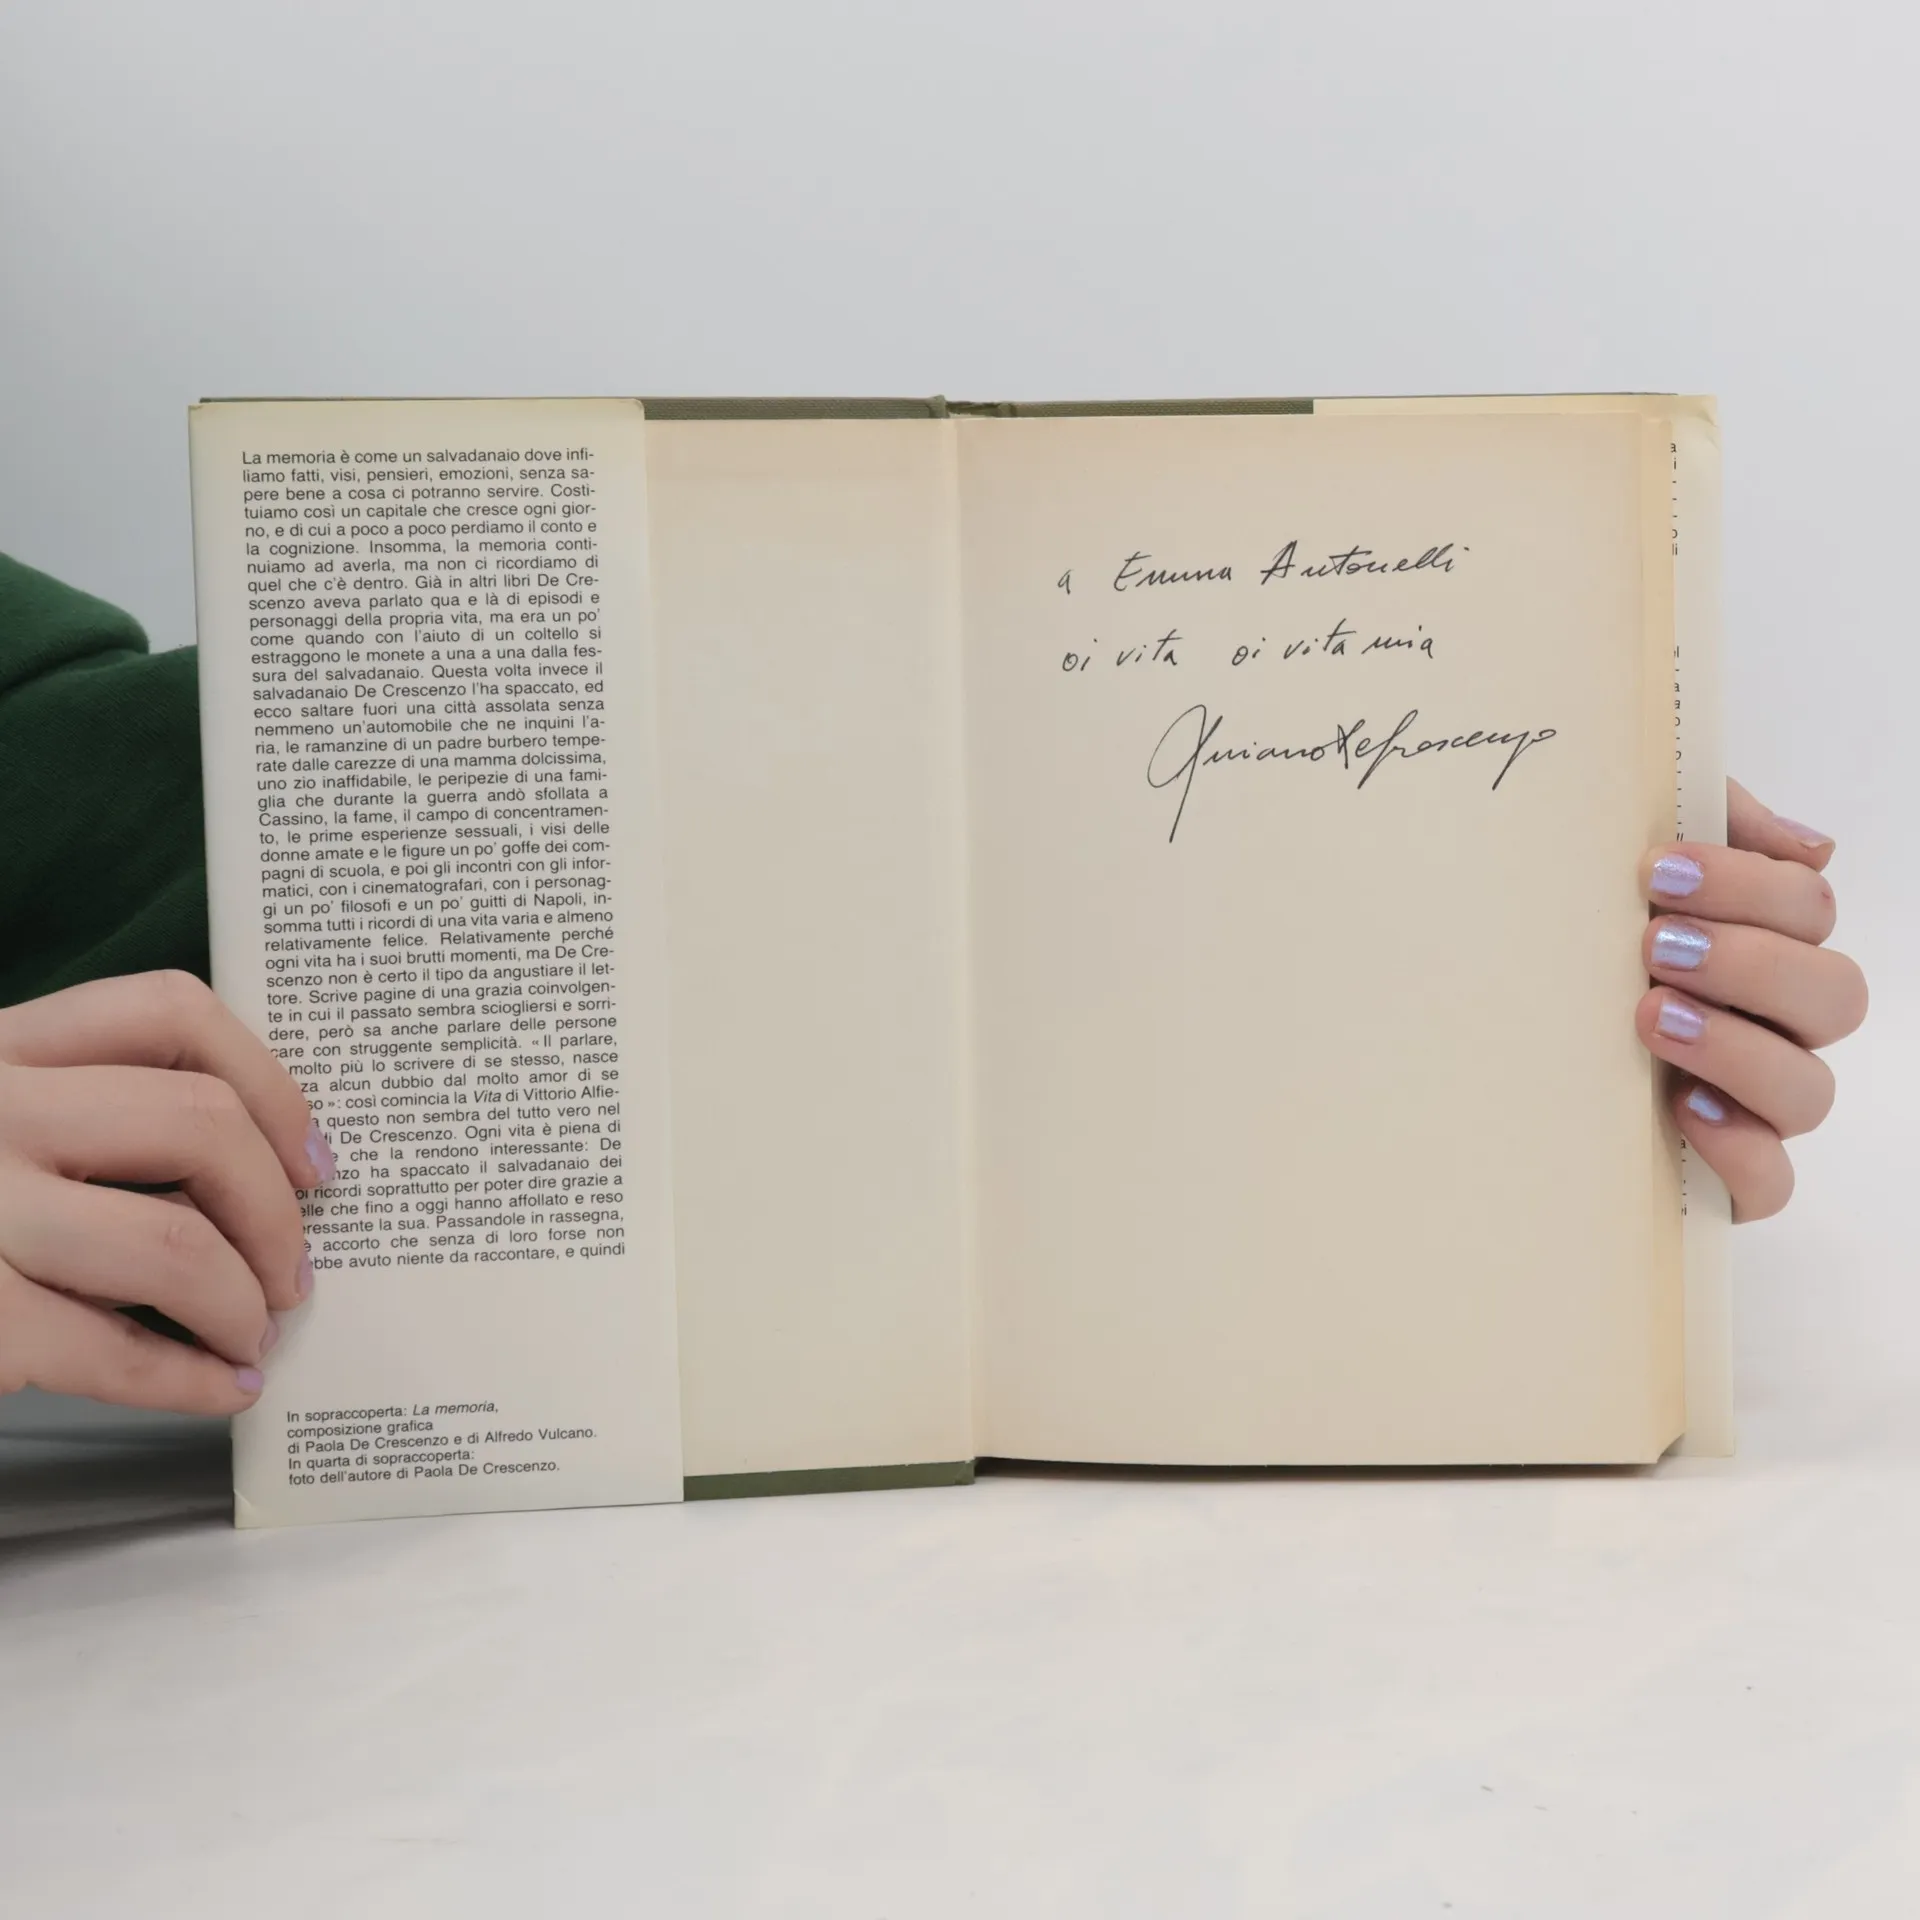 La memoria è come un salvadanaio dove infi-
liamo fatti, visi, pensieri, emozioni, senza sa-
pere bene a cosa ci potranno servire. Costi-
tuiamo così un capitale che cresce ogni gior-
no, e di cui a poco a poco perdiamo il conto e
la cognizione. Insomma, la memoria conti-
nuiamo ad averla, ma non ci ricordiamo di
quel che c'è dentro. Già in altri libri De Cre-
scenzo aveva parlato qua e là di episodi e
personaggi della propria vita, ma era un po'
come quando con l'aiuto di un coltello si
estraggono le monete a una a una dalla fes-
sura del salvadanaio. Questa volta invece il
salvadanaio De Crescenzo l'ha spaccato, ed
ecco saltare fuori una città assolata senza
nemmeno un'automobile che ne inquini l'a-
ria, le ramanzine di un padre burbero tempe-
rate dalle carezze di una mamma dolcissima,
uno zio inaffidabile, le peripezie di una fami-
glia che durante la guerra andò sfollata a
Cassino, la fame, il campo di concentramen-
to, le prime esperienze sessuali, i visi delle
donne amate e le figure un po' goffe dei com-
pagni di scuola, e poi gli incontri con gli infor-
matici, con i cinematografari, con i personag-
gi un po' filosofi e un po' guitti di Napoli, in-
somma tutti i ricordi di una vita varia e almeno
relativamente felice. Relativamente perché
ogni vita ha i suoi brutti momenti, ma De Cre-
scenzo non è certo il tipo da angustiare il let-
tore. Scrive pagine di una grazia coinvolgen-
te in cui il passato sembra sciogliersi e sorri-
dere, però sa anche parlare delle persone
care con struggente semplicità. «Il parlare,
molto più lo scrivere di se stesso, nasce
za alcun dubbio dal molto amor di se
so»: così comincia la Vita di Vittorio Alfie-
a questo non sembra del tutto vero nel
di De Crescenzo. Ogni vita è piena di
e che la rendono interessante: De
nzo ha spaccato il salvadanaio dei
oi ricordi soprattutto per poter dire grazie a
elle che fino a oggi hanno affollato e reso
eressante la sua. Passandole in rassegna,
è accorto che senza di loro forse non
ebbe avuto niente da raccontare, e quindi
In sopraccoperta: La memoria,
composizione grafica
di Paola De Crescenzo e di Alfredo Vulcano.
In quarta di sopraccoperta:
foto dell'autore di Paola De Crescenzo.
a Emma Antonelli
oi vita oi vita mia
Luciano De Crescenzo